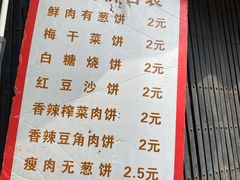 鲜肉有葱饼 2元
梅干菜饼 2元
白糖烧饼 2元
红豆沙饼 2元
香辣榨菜肉饼 2元
香辣豆角肉饼 2元
瘦肉无葱饼 2.5元